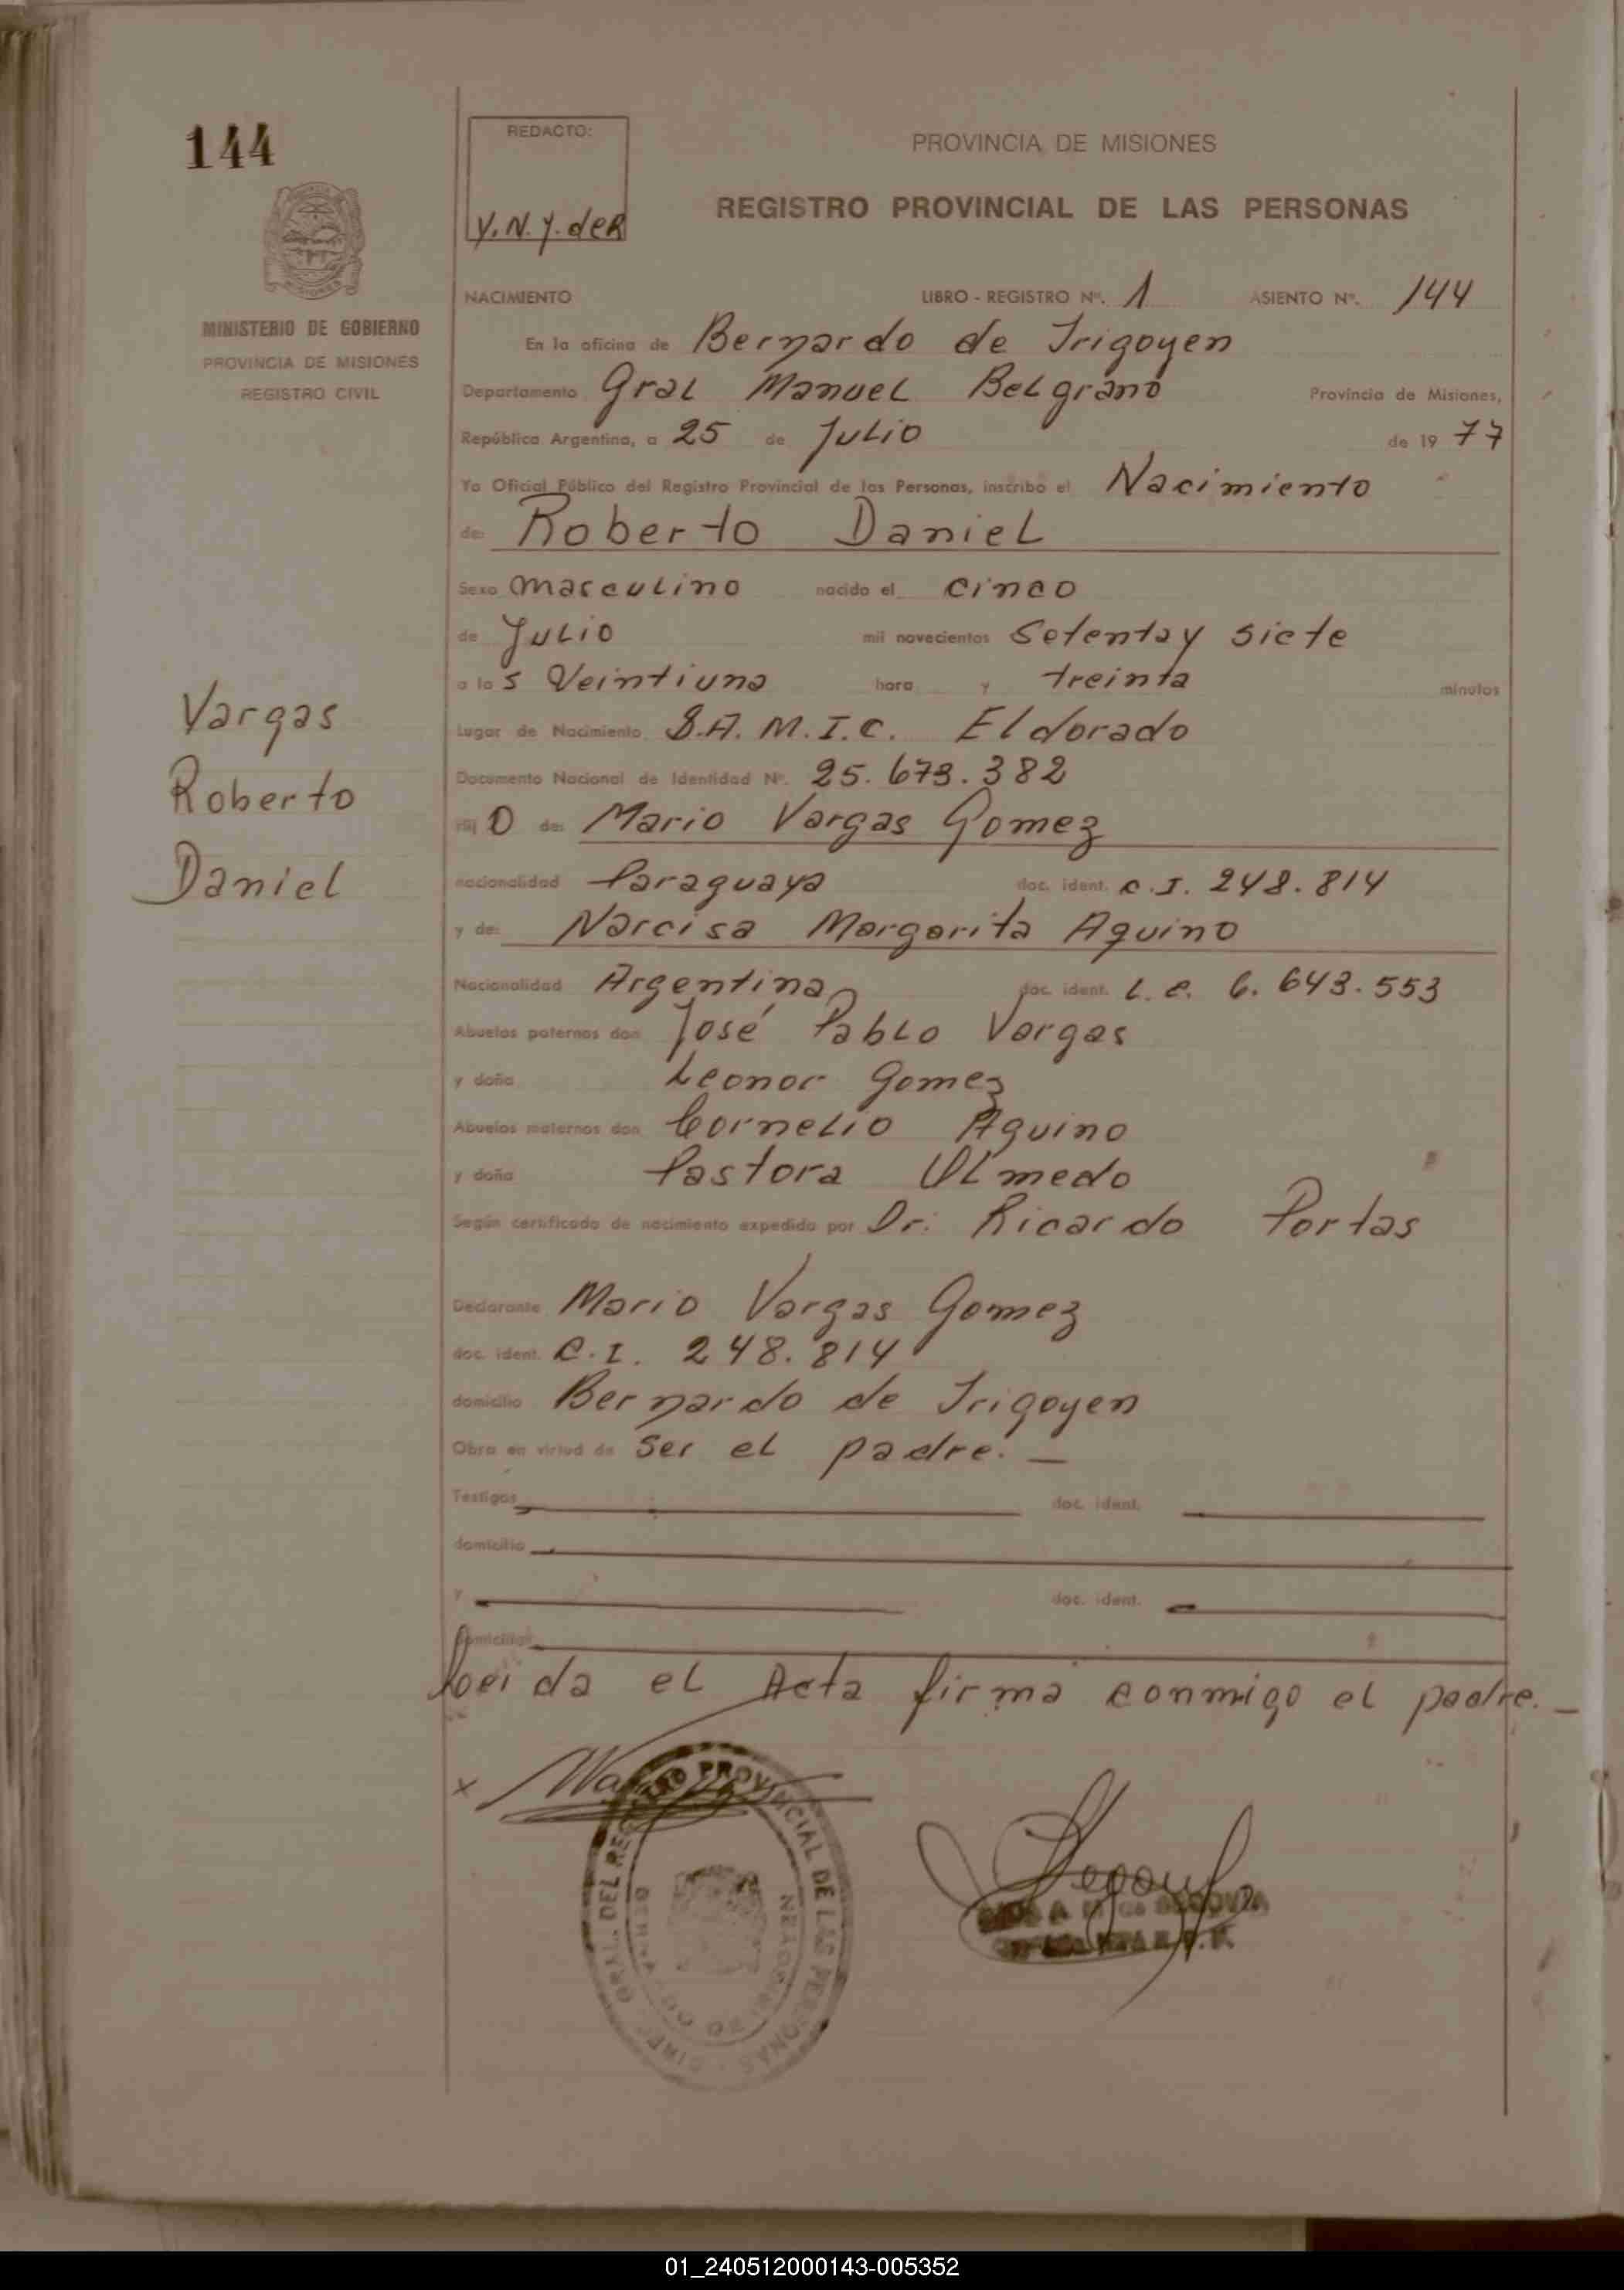 144
MINISTERIO DE GOBIERNO
PROVINCIA DE MISIONES
REGISTRO CIVIL
Vargas
Roberto
Daniel
REDACTO:
Y.N.Y. deR
PROVINCIA DE MISIONES
REGISTRO PROVINCIAL DE LAS PERSONAS
NACIMIENTO LIBRO - REGISTRO Nº. 1 ASIENTO Nº. 144
En la oficina de Bernardo de Irigoyen
Departamento Gral Manuel Belgrano Provincia de Misiones,
República Argentina, a 25 de Julio de 19 77
Yo Oficial Público del Registro Provincial de las Personas, inscribo el Nacimiento
de: Roberto Daniel
Sexo masculino nacido el cinco
de Julio mil novecientos Setenta y siete
a las Veintiuna hora y treinta minutos
Lugar de Nacimiento S.A.M.I.C. Eldorado
Documento Nacional de Identidad Nº. 25.673.382
Hij o de: Mario Vargas Gomez
nacionalidad Paraguaya doc. ident. C.I. 248.814
y de: Narcisa Margarita Aquino
Nacionalidad Argentina doc. ident. L.C. 6.643.553
Abuelos paternos don José Pablo Vargas
y doña Leonor Gomez
Abuelos maternos don Cornelio Aquino
y doña Pastora Olmedo
Según certificado de nacimiento expedido por Dr: Ricardo Portas
Declarante Mario Vargas Gomez
doc. ident. C.I. 248.814
domicilio Bernardo de Irigoyen
Obra en virtud de ser el padre. —
Testigos doc. ident.
domicilio
y doc. ident.
domicilio
Leida el Acta firma conmigo el padre. —
x
GRAL. DEL REGISTRO PROVINCIAL DE LAS PERSONAS
SEGOVIA
01_240512000143-005352